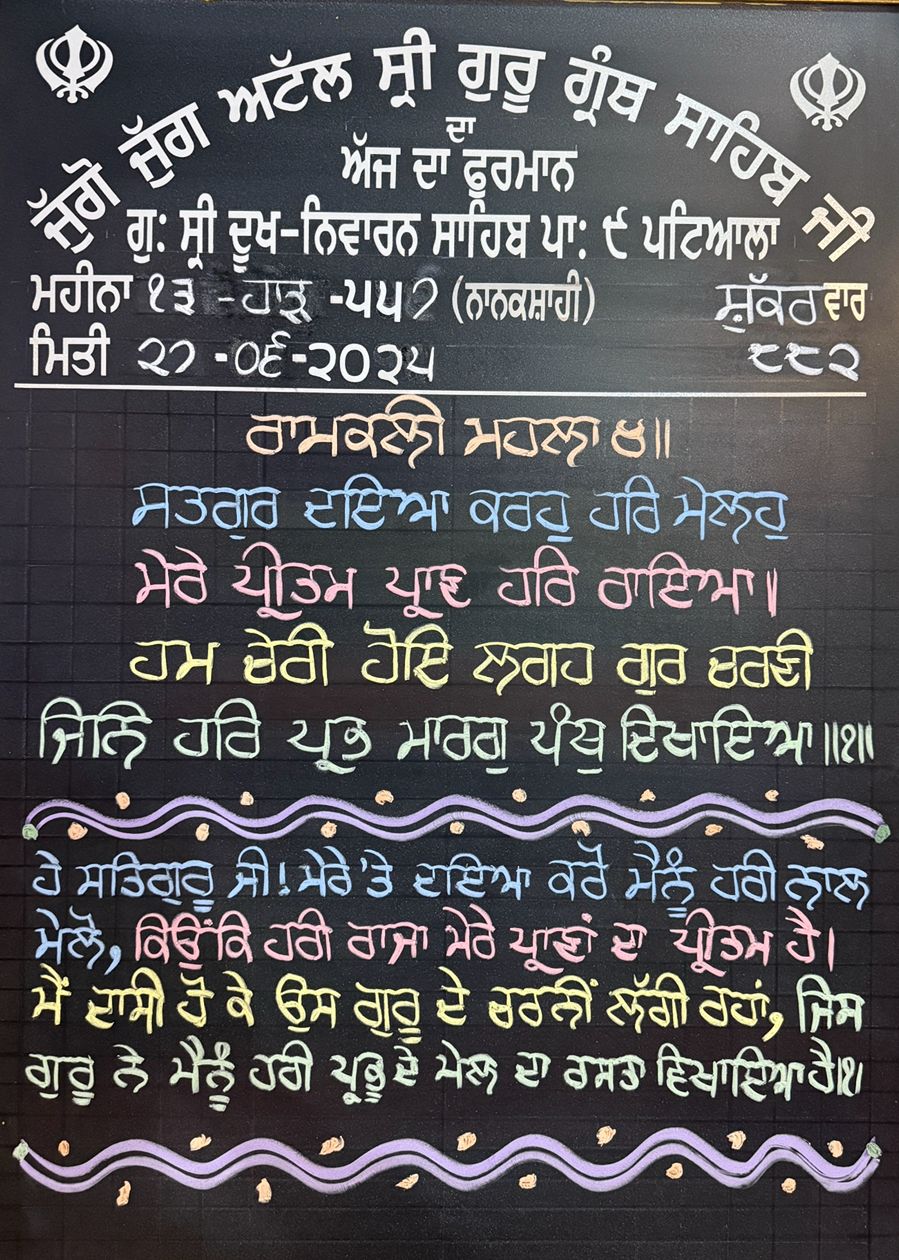 ਜੁੱਗੋ ਜੁੱਗ ਅਟੱਲ ਸ੍ਰੀ ਗੁਰੂ ਗ੍ਰੰਥ ਸਾਹਿਬ ਜੀ
ਦਾ
ਅੱਜ ਦਾ ਫੁਰਮਾਨ
ਗੁ: ਸ੍ਰੀ ਦੂਖ-ਨਿਵਾਰਨ ਸਾਹਿਬ ਪਾ: ੯ ਪਟਿਆਲਾ
ਮਹੀਨਾ ੧੩ -ਹਾੜ -੫੫੭ (ਨਾਨਕਸ਼ਾਹੀ) ਸ਼ੁੱਕਰਵਾਰ
ਮਿਤੀ ੨੭ -੦੬-੨੦੨੫ ੮੮੨
ਰਾਮਕਲੀ ਮਹਲਾ ੪॥
ਸਤਗੁਰ ਦਇਆ ਕਰਹੁ ਹਰਿ ਮੇਲਹੁ
ਮੇਰੇ ਪ੍ਰੀਤਮ ਪ੍ਰਾਣ ਹਰਿ ਰਾਇਆ॥
ਹਮ ਚੇਰੀ ਹੋਇ ਲਗਹ ਗੁਰ ਚਰਣੀ
ਜਿਨਿ ਹਰਿ ਪ੍ਰਭ ਮਾਰਗੁ ਪੰਥੁ ਦਿਖਾਇਆ॥੧॥
ਹੇ ਸਤਿਗੁਰੂ ਜੀ! ਮੇਰੇ 'ਤੇ ਦਇਆ ਕਰੋ ਮੈਨੂੰ ਹਰੀ ਨਾਲ
ਮੇਲੋ, ਕਿਉਂਕਿ ਹਰੀ ਰਾਜਾ ਮੇਰੇ ਪ੍ਰਾਣਾਂ ਦਾ ਪ੍ਰੀਤਮ ਹੈ।
ਮੈਂ ਦਾਸੀ ਹੋ ਕੇ ਉਸ ਗੁਰੂ ਦੇ ਚਰਨੀਂ ਲੱਗੀ ਰਹਾਂ, ਜਿਸ
ਗੁਰੂ ਨੇ ਮੈਨੂੰ ਹਰੀ ਪ੍ਰਭੂ ਦੇ ਮੇਲ ਦਾ ਰਸਤਾ ਵਿਖਾਇਆ ਹੈ।੧।